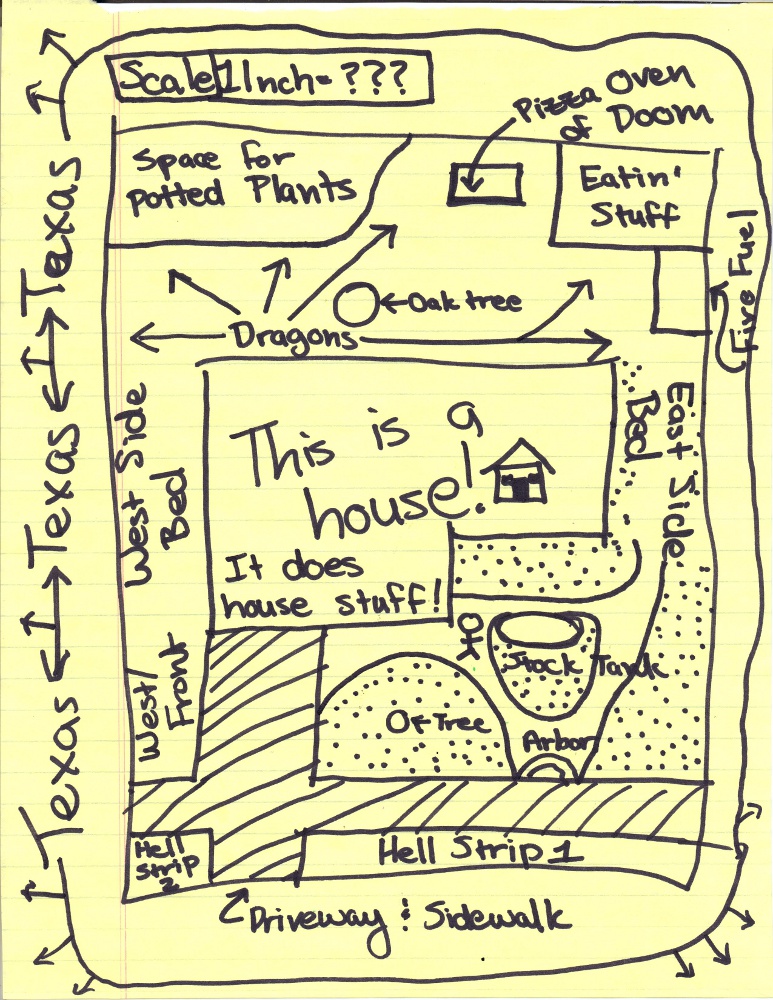 Scale 1 Inch = ???
Pizza Oven
of Doom
Space for
Potted Plants
Eatin'
Stuff
Fire Fuel
Oak tree
Dragons
Texas
Texas
Texas
West Side
Bed
East Side
Bed
This is a
house!
It does
house stuff!
West/
Front
OK
Stock Tank
Of Tree
Arbor
Hell
Strip
2
Hell Strip 1
Driveway & Sidewalk